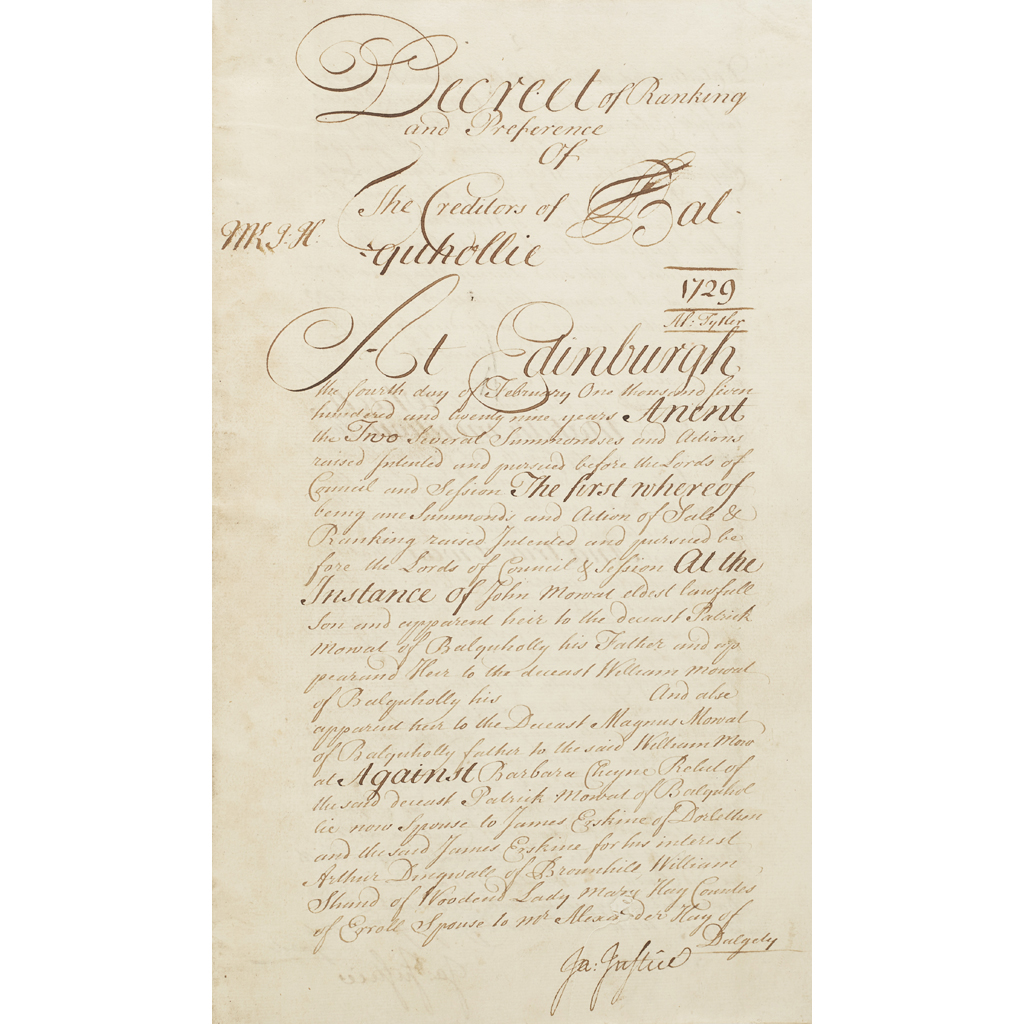 Decreet of Ranking
and Preference
Of
The Creditors of Bal-
-quhollie
1729
Al: Tytler
At Edinburgh
the fourth day of February One thousand seven
hundered and twenty nine years Anent
the Two Several Summondses and Actions
raised Intented and pursued before the Lords of
Council and Session The first whereof
being ane Summonds and Action of Sale &
Ranking raised Intented and pursued be
fore the Lords of Council & Session At the
Instance of John Mowat eldest lawfull
Son and apparent heir to the deceast Patrick
Mowat of Balquholly his Father and ap
pearand Heir to the deceast William Mowat
of Balquholly his And also
apparent heir to the Deceast Magnus Mowat
of Balquholly father to the said William Mow
at Against Barbara Cheyne Relict of
the said deceast Patrick Mowat of Balquhol
lie now Spouse to James Erskine of Dorlethen
and the said James Erskine for his interest
Arthur Dingwall of Brounhill William
Shand of Woodend Lady Mary Hay Countes
of Erroll Spouse to Mr Alexander Hay of
Dalgety
Ja: Justice